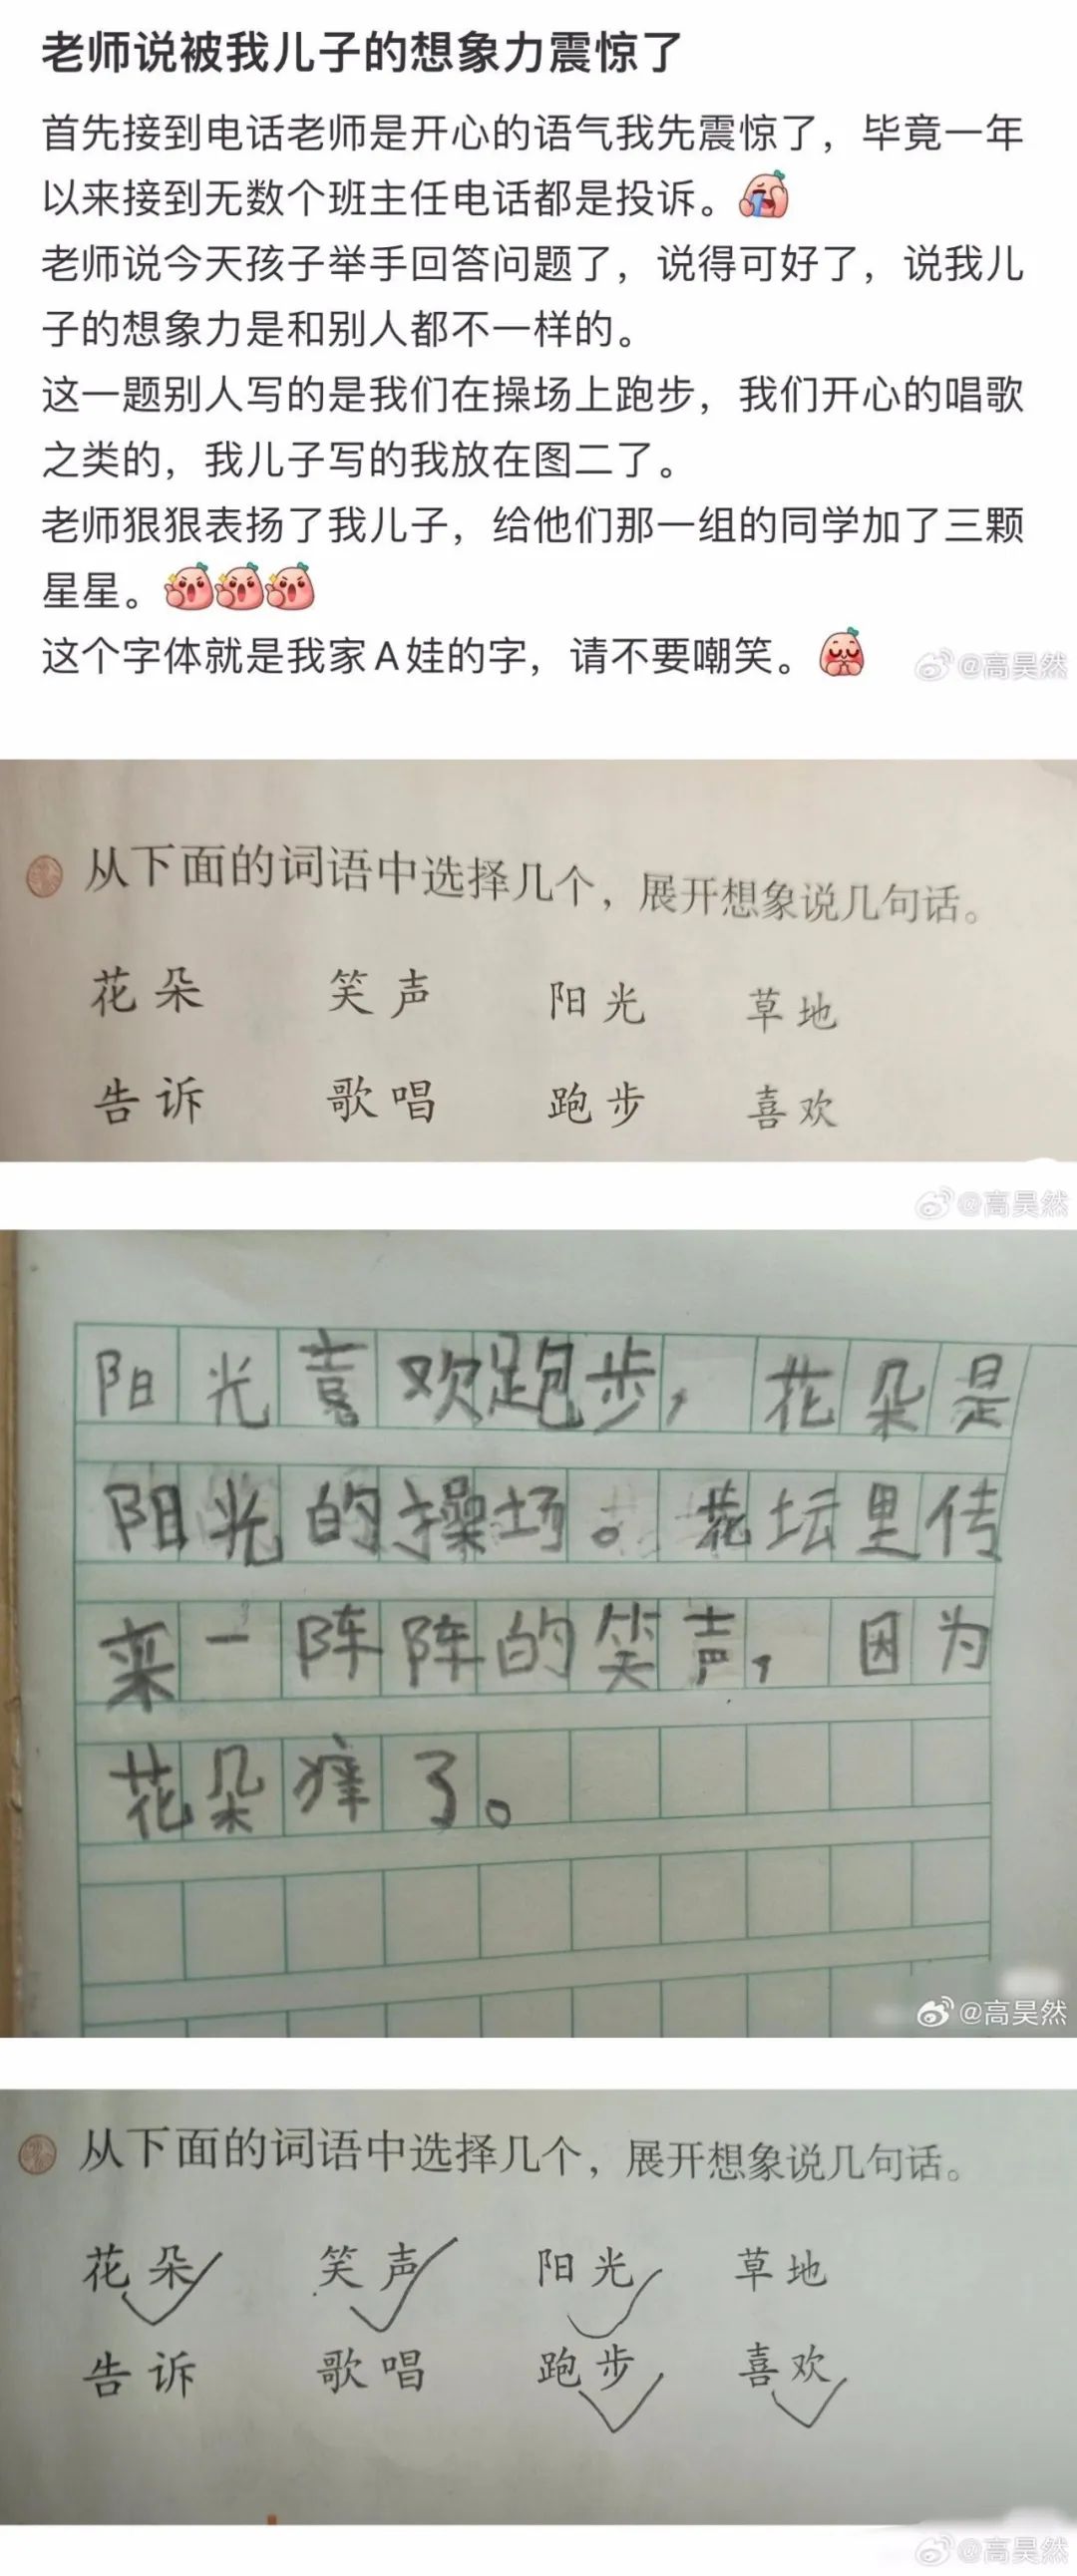 老师说被我儿子的想象力震惊了
首先接到电话老师是开心的语气我先震惊了，毕竟一年
以来接到无数个班主任电话都是投诉。
老师说今天孩子举手回答问题了，说得可好了，说我儿
子的想象力是和别人都不一样的。
这一题别人写的是我们在操场上跑步，我们开心的唱歌
之类的，我儿子写的我放在图二了。
老师狠狠表扬了我儿子，给他们那一组的同学加了三颗
星星。
这个字体就是我家A娃的字，请不要嘲笑。
@高昊然
从下面的词语中选择几个，展开想象说几句话。
花朵 笑声 阳光 草地
告诉 歌唱 跑步 喜欢
@高昊然
阳光喜欢跑步，花朵是
阳光的操场。花坛里传
来一阵阵的笑声，因为
花朵痒了。
@高昊然
从下面的词语中选择几个，展开想象说几句话。
花朵 笑声 阳光 草地
告诉 歌唱 跑步 喜欢
@高昊然